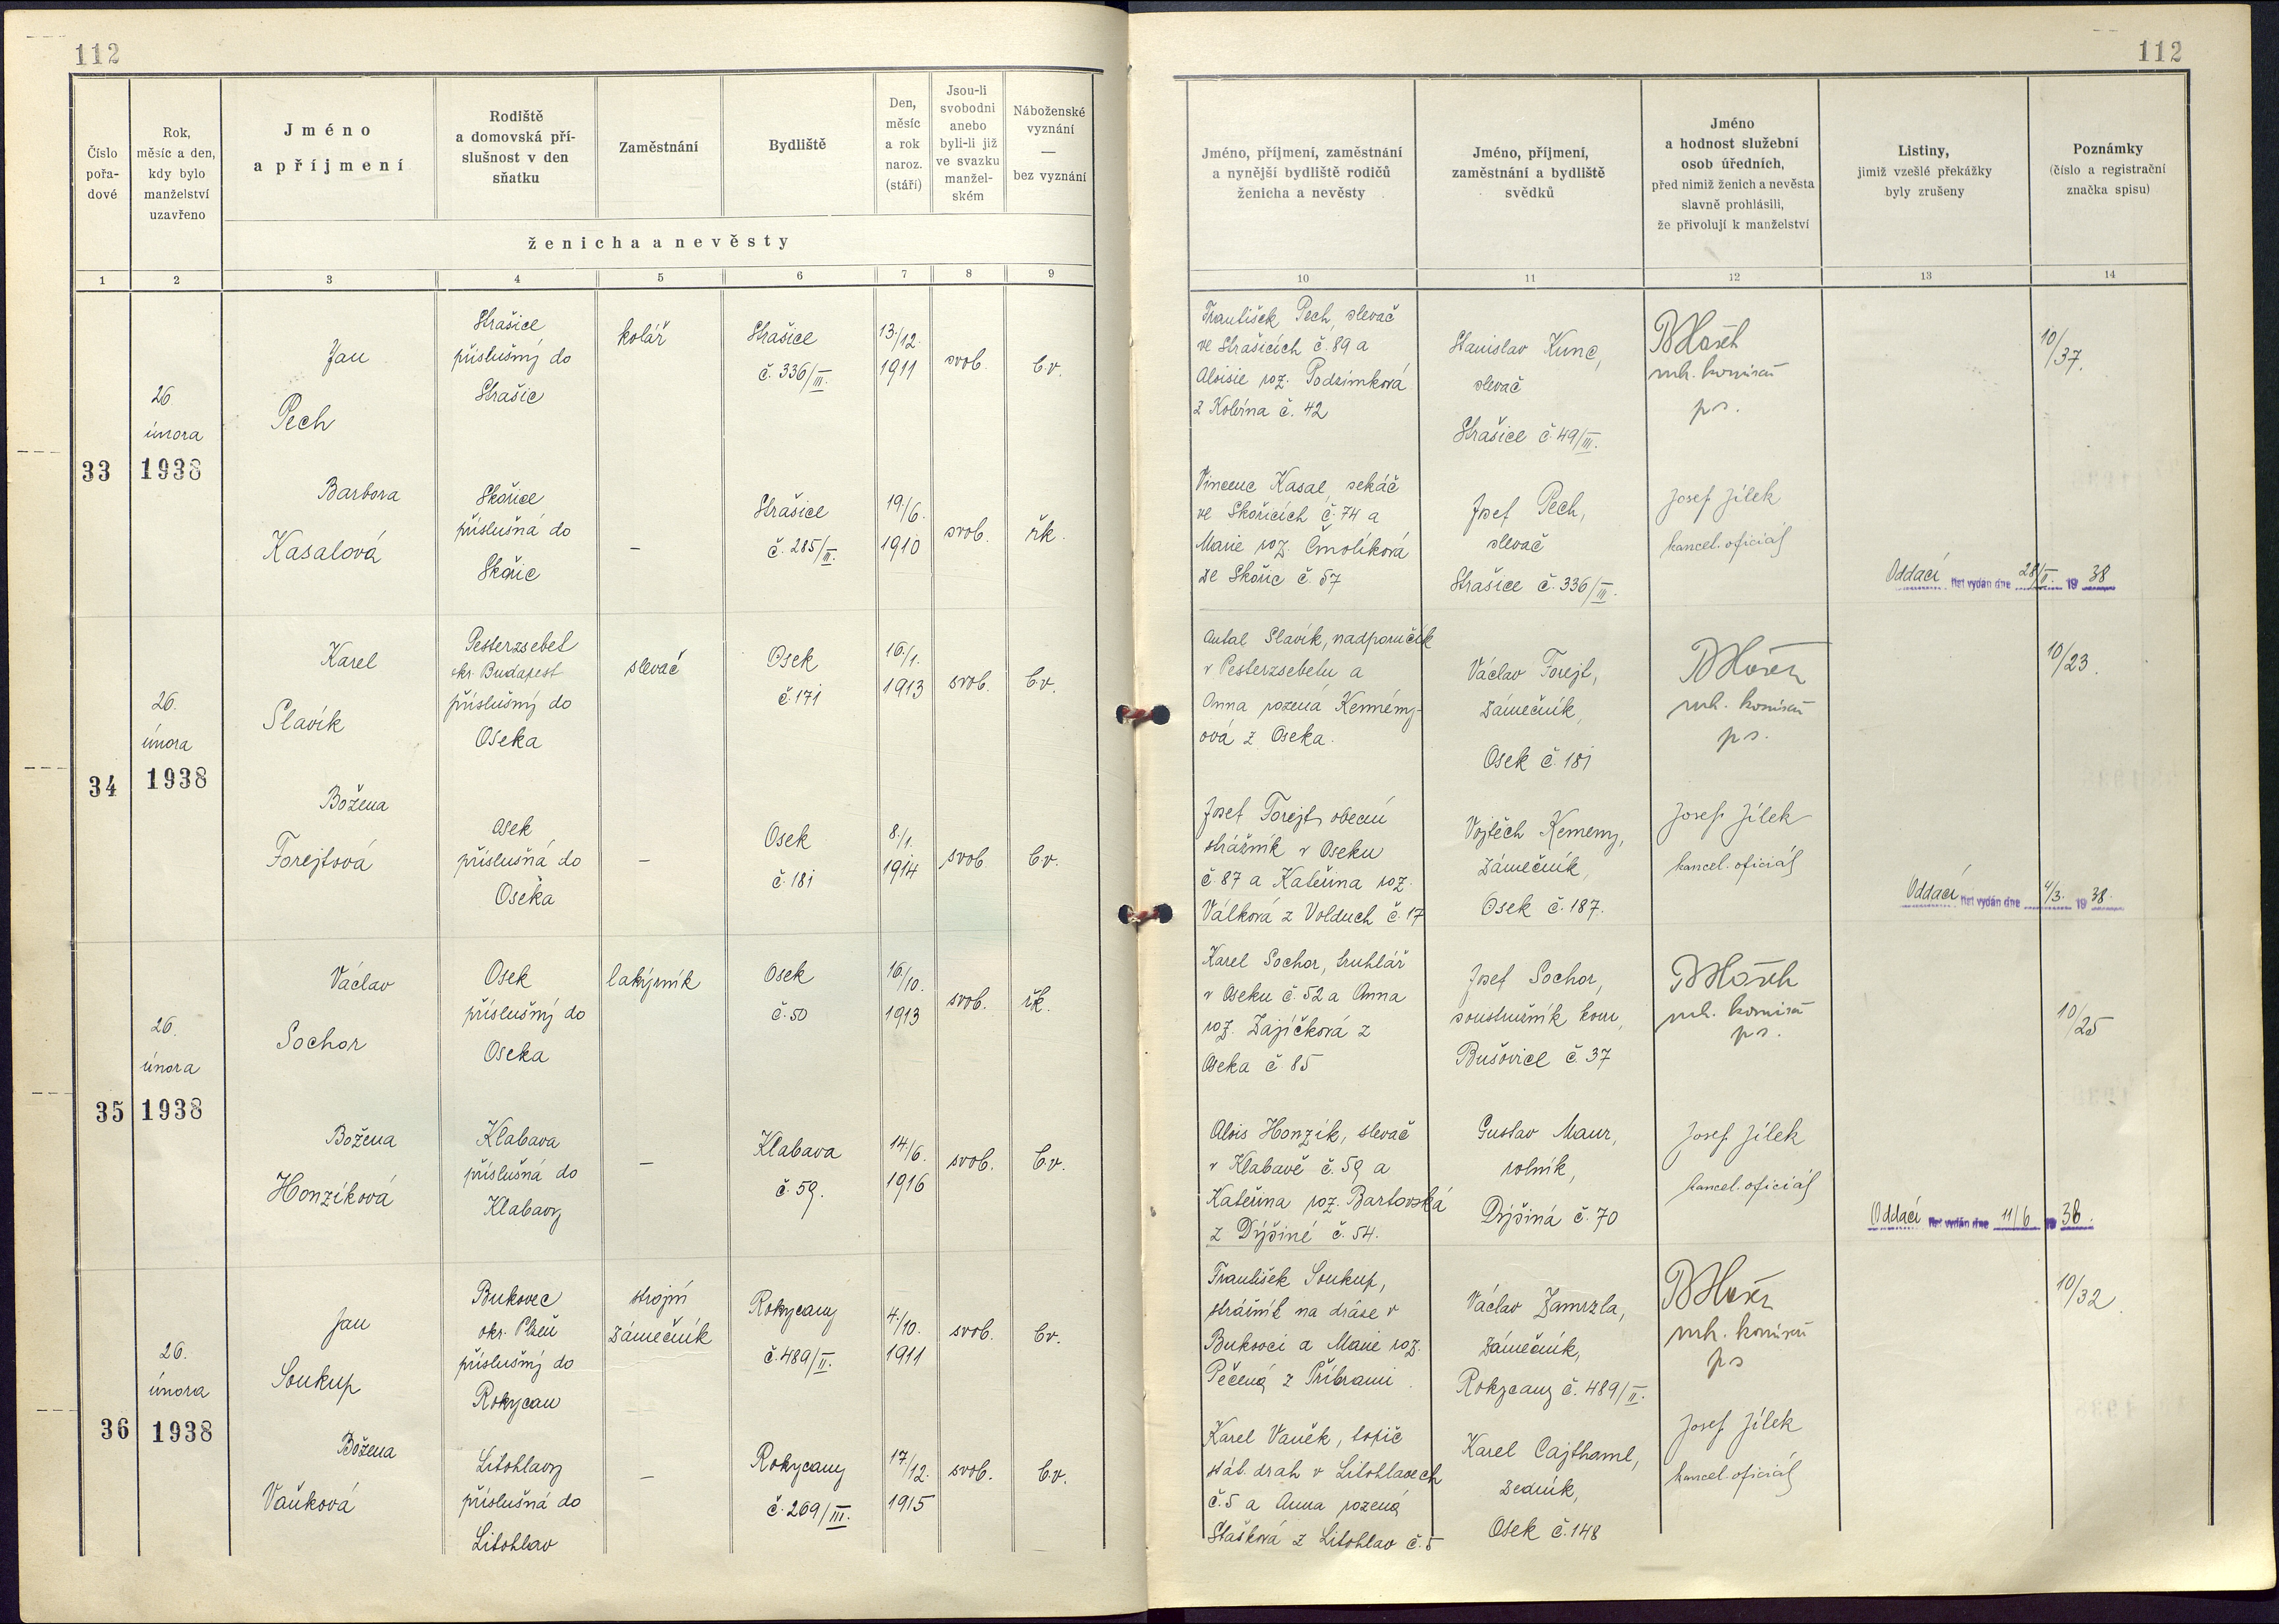 112
112
Číslo
pořa-
dové
Rok,
měsíc a den,
kdy bylo
manželství
uzavřeno
Jméno
a příjmení
Rodiště
a domovská pří-
slušnost v den
sňatku
Zaměstnání
Bydliště
Den,
měsíc
a rok
naroz.
(stáří)
Jsou-li
svobodni
anebo
byli-li již
ve svazku
manžel-
ském
Náboženské
vyznání
—
bez vyznání
ženicha a nevěsty
Jméno, příjmení, zaměstnání
a nynější bydliště rodičů
ženicha a nevěsty
Jméno, příjmení,
zaměstnání a bydliště
svědků
Jméno
a hodnost služební
osob úředních,
před nimiž ženich a nevěsta
slavně prohlásili,
že přivolují k manželství
Listiny,
jimiž vzešlé překážky
byly zrušeny
Poznámky
(číslo a registrační
značka spisu)
1 2 3 4 5 6 7 8 9 10 11 12 13 14
33
26.
února
1938
Jan
Pech
Strašice
příslušný do
Strašic
kolář
Strašice
č. 336/III.
13./12.
1911
svob.
b.v.
František Pech, slevač
ve Strašicích č. 89 a
Aloisie roz. Podzimková
z Kolvína č. 42
Stanislav Kunc,
slevač
Strašice č. 49/III.
p s.
10/37.
Barbora
Kasalová
Skořice
příslušná do
Skořic
—
Strašice
č. 285/II.
19./6.
1910
svob.
řk.
Vincenc Kasal, sekáč
ve Skořicích č. 74 a
Marie roz. Čmolíková
ze Skořic č. 57
Josef Pech,
slevač
Strašice č. 336/III.
Josef Jílek
kancel. oficiál
Oddací list vydán dne 28/II. 19 38
34
26.
února
1938
Karel
Slavík
Pesterzsebet
okr. Budapest
příslušný do
Oseka
slevač
Osek
č. 171
16./1.
1913
svob.
b.v.
Antal Slavík, nadporučík
v Pesterzsebetu a
Anna rozená Kemémy-
ová z Oseka.
Václav Forejt,
zámečník,
Osek č. 181
p s.
10/23.
Božena
Forejtová
Osek
příslušná do
Oseka
—
Osek
č. 181
8./1.
1914
svob
b.v.
Josef Forejt, obecní
strážník v Oseku
č. 87 a Kateřina roz.
Válková z Volduch č. 17
Vojtěch Kemeny,
zámečník,
Osek č. 187.
Josef Jílek
kancel. oficiál
Oddací list vydán dne 4/3. 19 38.
35
26.
února
1938
Václav
Sochor
Osek
příslušný do
Oseka
lakýrník
Osek
č. 50
16./10.
1913
svob.
řk.
Karel Sochor, truhlář
v Oseku č. 52 a Anna
roz. Zajíčková z
Oseka č 85
Josef Sochor,
soustružník kovu,
Bušovice č. 37
p s.
10/25
Božena
Honzíková
Klabava
příslušná do
Klabavy
—
Klabava
č. 59.
14./6.
1916
svob.
b.v.
Alois Honzík, slevač
v Klabavě č. 59 a
Kateřina roz. Bartovská
z Dýšiné č. 54.
Gustav Maur,
rolník,
Dýšiná č. 70
Josef Jílek
kancel. oficiál
Oddací list vydán dne 11/6 19 38.
36
26.
února
1938
Jan
Soukup
Bukovec
okr. Plzeň
příslušný do
Rokycan
strojní
zámečník
Rokycany
č. 489/II.
4./10.
1911
svob.
b.v.
František Soukup,
strážník na dráze v
Bukovci a Marie roz.
Pečená z Příbrami
Václav Zamrzla,
zámečník,
Rokycany č. 489/II.
p s
10/32.
Božena
Vaňková
Litohlavy
příslušná do
Litohlav
—
Rokycany
č. 269/III.
17./12.
1915
svob.
b.v.
Karel Vaněk, topič
stát. drah v Litohlavech
č. 5 a Anna rozená
Stašková z Litohlav č. 5
Karel Cajthaml,
zedník,
Osek č. 148
Josef Jílek
kancel. oficiál